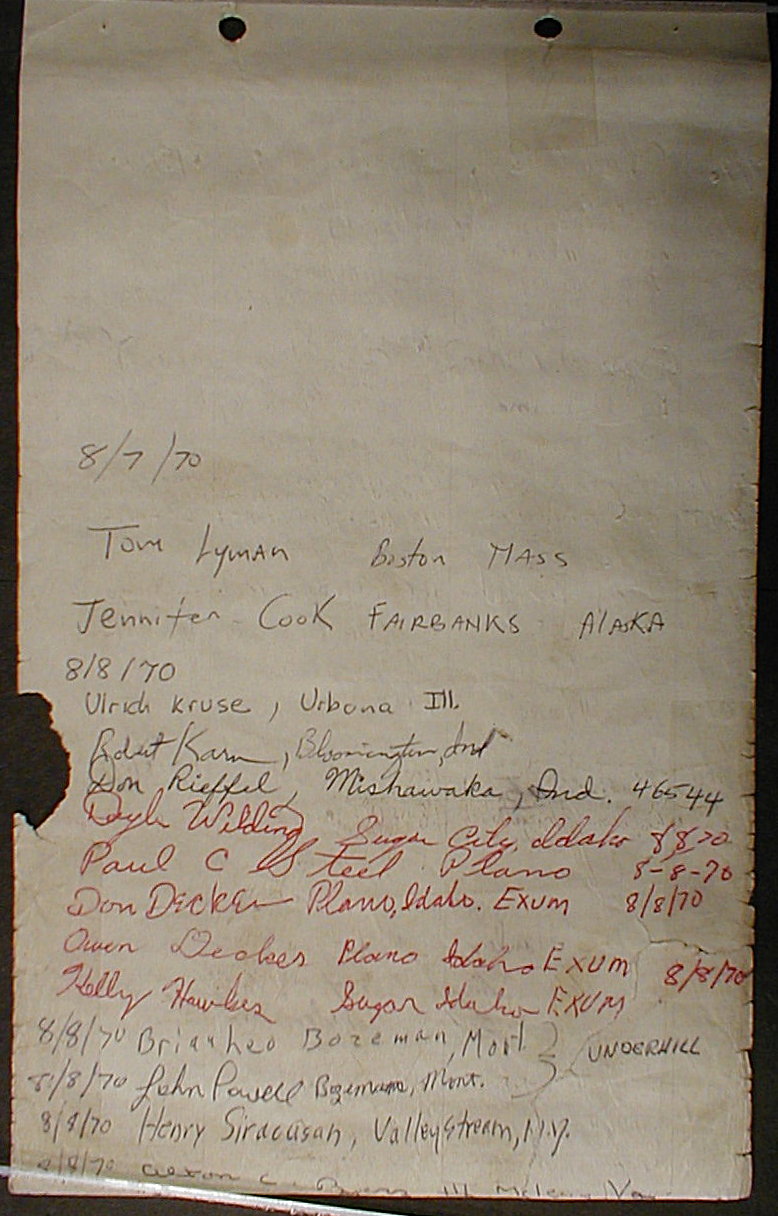 8/7/70
Tom Lyman Boston MASS
Jennifer Cook FAIRBANKS AlASKA
8/8/70
Ulrich Kruse, Urbana Ill.
Robert Karn, Bloomington, Ind
Don Rieffel, Mishawaka, Ind. 46544
Wilding Sugar City, Idaho 8 8 70
Paul C Steel Plano 8-8-70
Don Decker Plano, Idaho. Exum 8/8/70
Owen Decker Plano Idaho EXUM 8/8/70
Kelly Hawkes Sugar Idaho EXUM
8/8/70 Brian Leo Bozeman, Mont. UNDERHILL
8/8/70 John Powell Bozeman, Mont.
8/8/70 Henry Siracusan, Valleystream, N.Y.
8/8/70 III Va